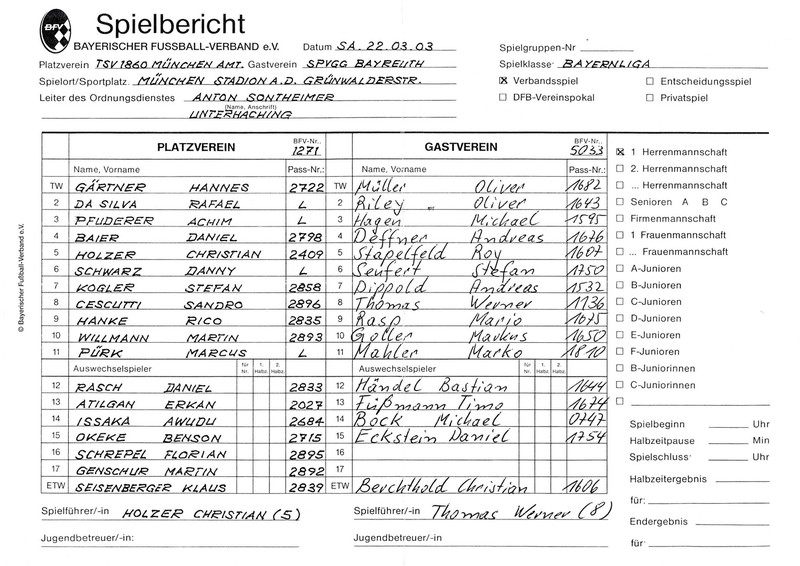 BFV
Spielbericht
BAYERISCHER FUSSBALL-VERBAND e.V. Datum SA. 22.03.03 Spielgruppen-Nr
Platzverein TSV 1860 MÜNCHEN AMT. Gastverein SPVGG BAYREUTH Spielklasse BAYERNLIGA
Spielort/Sportplatz. MÜNCHEN STADION A.D. GRÜNWALDERSTR. ☒ Verbandsspiel ☐ Entscheidungsspiel
Leiter des Ordnungsdienstes ANTON SONTHEIMER ☐ DFB-Vereinspokal ☐ Privatspiel
(Name, Anschrift)
UNTERHACHING
PLATZVEREIN BFV-Nr.. 1271 GASTVEREIN BFV-Nr.. 5033 ☒ 1 Herrenmannschaft
Name, Vorname Pass-Nr.: Name, Vorname Pass-Nr.: ☐ 2. Herrenmannschaft
TW GÄRTNER HANNES 2722 TW Müller Oliver 1682 ☐ ... Herrenmannschaft
2 DA SILVA RAFAEL L 2 Riley Oliver 1643 ☐ Senioren A B C
3 PFUDERER ACHIM L 3 Hagen Michael 1595 ☐ Firmenmannschaft
4 BAIER DANIEL 2798 4 Deffner Andreas 1676 ☐ 1 Frauenmannschaft
5 HOLZER CHRISTIAN 2409 5 Stapelfeld Roy 1607 ☐ ... Frauenmannschaft
6 SCHWARZ DANNY L 6 Seufert Stefan 1750 ☐ A-Junioren
7 KOGLER STEFAN 2858 7 Dippold Andreas 1532 ☐ B-Junioren
8 CESCUTTI SANDRO 2896 8 Thomas Werner 1136 ☐ C-Junioren
9 HANKE RICO 2835 9 Rasp Mario 1675 ☐ D-Junioren
10 WILLMANN MARTIN 2893 10 Goller Markus 1650 ☐ E-Junioren
11 PÜRK MARCUS L 11 Mahler Marko 1810 ☐ F-Junioren
Auswechselspieler für Nr. 1. Halbz. 2. Halbz. Auswechselspieler für Nr. 1. Halbz. 2. Halbz. ☐ B-Juniorinnen
12 RASCH DANIEL 2833 12 Händel Bastian 1644 ☐ C-Juniorinnen
13 ATILGAN ERKAN 2027 13 Füßmann Timo 1674 ☐
14 ISSAKA AWUDU 2684 14 Böck Michael 0747 Spielbeginn Uhr
15 OKEKE BENSON 2715 15 Eckstein Daniel 1754 Halbzeitpause Min
16 SCHREPEL FLORIAN 2895 16 Spielschluss Uhr
17 GENSCHUR MARTIN 2892 17 Halbzeitergebnis
ETW SEISENBERGER KLAUS 2839 ETW Berchthold Christian 1606 für:
Spielführer/-in HOLZER CHRISTIAN (5) Spielführer/-in Thomas Werner (8) Endergebnis
Jugendbetreuer/-in: Jugendbetreuer/-in für
© Bayerischer Fußball-Verband e.V.